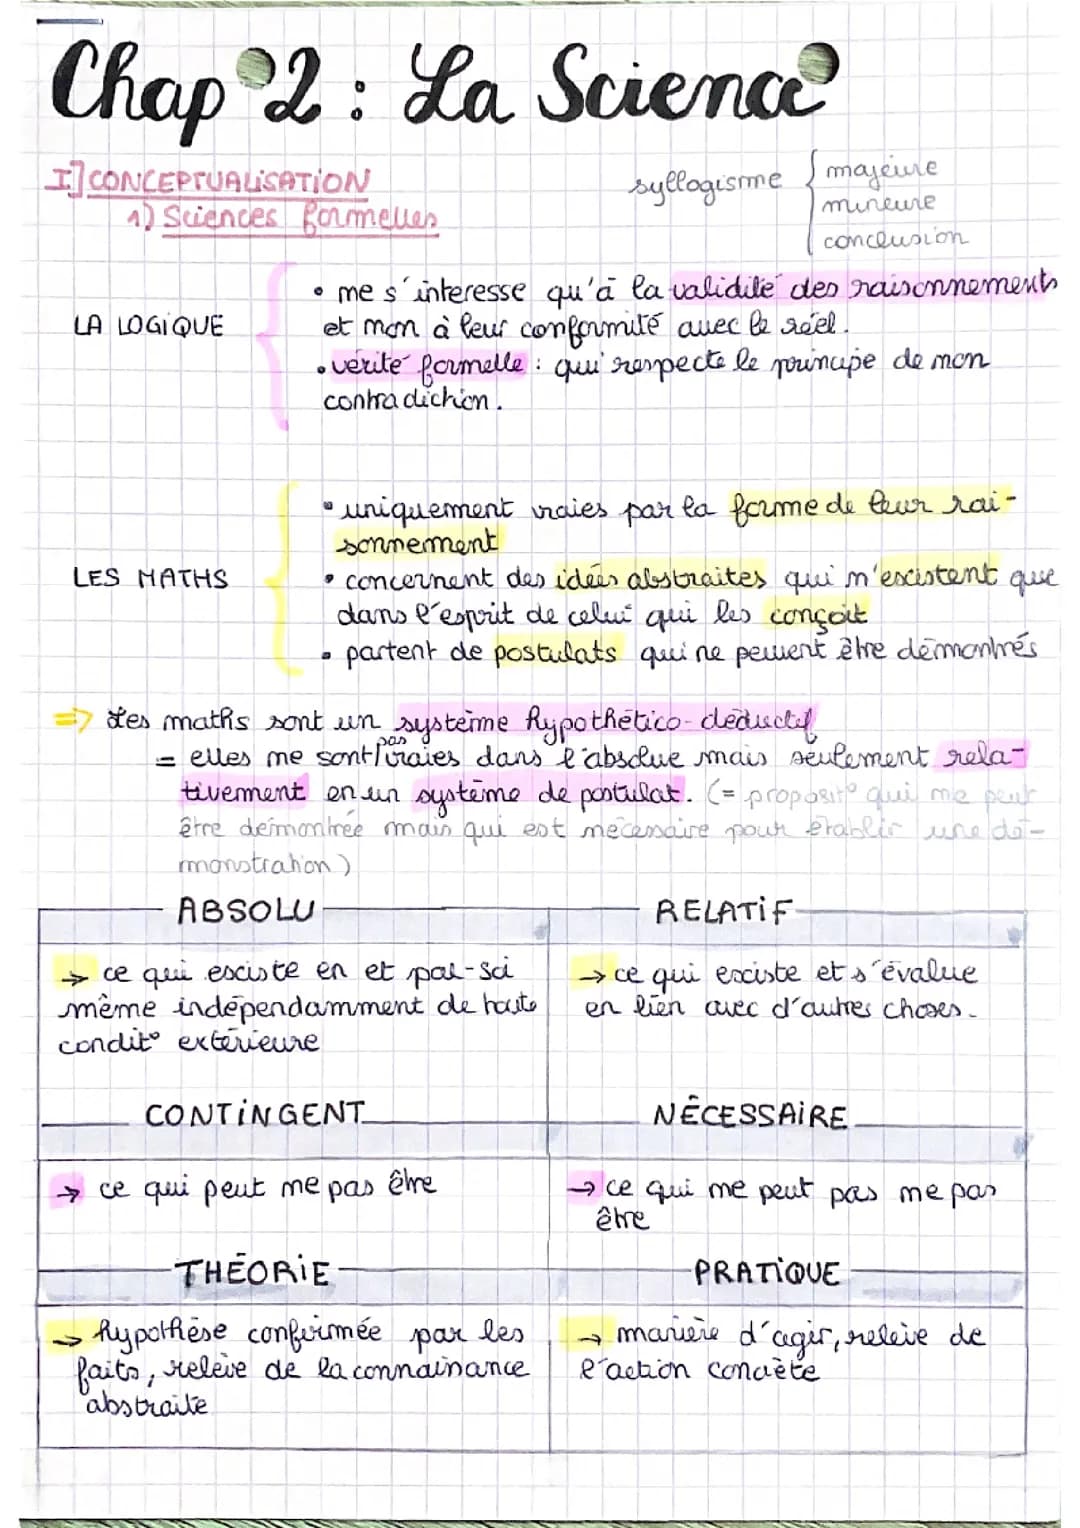 Chap 2 : La Science
I] CONCEPTUALISATION
1) Sciences formelles
syllogisme { majeure
mineure
conclusion
LA LOGIQUE
• ne s'interesse qu'à la validité des raisonnements
et non à leur conformité avec le réel.
• vérité formelle : qui respecte le principe de non
contradiction.
LES MATHS
• uniquement vraies par la forme de leur rai-
sonnement
• concernent des idées abstraites qui n'existent que
dans l'esprit de celui qui les conçoit
• partent de postulats qui ne peuvent être démontrés
=> Les maths sont un système hypothético-déductif
= elles ne sont pas vraies dans l'absolue mais seulement rela-
tivement en un système de postulat. (= proposit° qui ne peut
être démontrée mais qui est nécessaire pour établir une dé-
monstration)
ABSOLU
RELATIF
→ ce qui existe en et par-soi
même indépendamment de toute
condit° extérieure
→ ce qui existe et s'évalue
en lien avec d'autres choses.
CONTINGENT
NÉCESSAIRE
→ ce qui peut ne pas être
→ ce qui ne peut pas ne pas
être
THÉORIE
PRATIQUE
→ hypothèse confirmée par les
faits, relève de la connaissance
abstraite
→ manière d'agir, relève de
l'action concrète